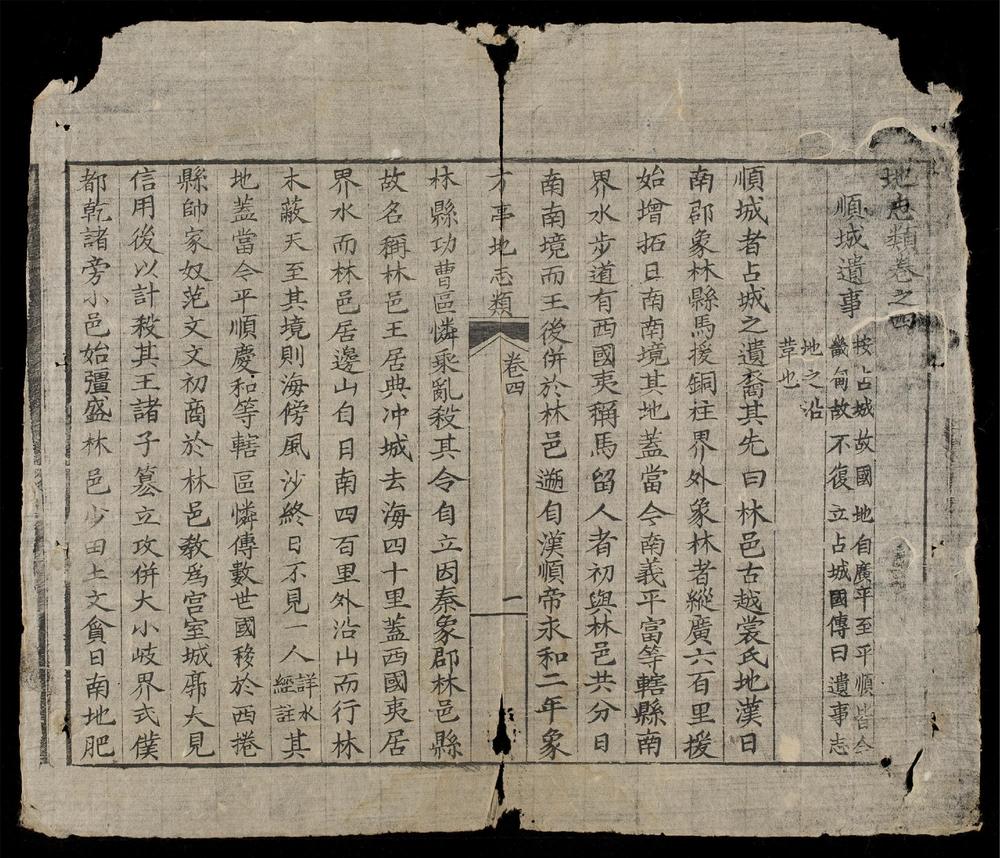 地志類卷之四
順城遺事
按占城故國地自廣平至平順皆今
畿甸故不復立占城國傳曰遺事志
地之沿
革也
順城者占城之遺裔其先曰林邑古越裳氏地漢日
南郡象林縣馬援銅柱界外象林者縱廣六百里援
始增拓日南南境其地蓋當今南義平富等轄縣南
界水步道有西國夷稱馬留人者初與林邑共分日
南南境而王後併於林邑遡自漢順帝永和二年象
方亭地志類
卷四
一
林縣功曹區憐乘亂殺其令自立因秦象郡林邑縣
故名稱林邑王居典冲城去海四十里蓋西國夷居
界水而林邑居邊山自日南四百里外沿山而行林
木蔽天至其境則海傍風沙終日不見一人詳水經註其
地蓋當今平順慶和等轄區憐傳數世國移於西捲
縣帥家奴范文文初商於林邑教為宮室城郭大見
信用後以計殺其王諸子篡立攻併大小岐界式僕
都乾諸旁小邑始彊盛林邑少田土文貪日南地肥